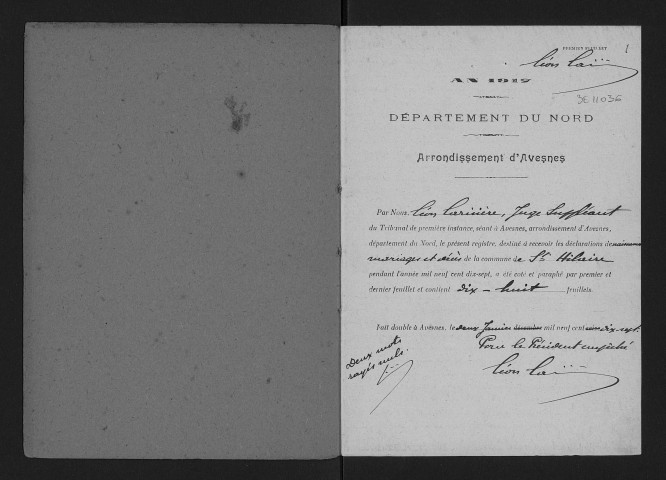 PREMIER FEUILLET 1
Léon Car
AN 1917
3E 11036
DÉPARTEMENT DU NORD
Arrondissement d'Avesnes
Par Nous, Léon Carrière, Juge Suppléant
du Tribunal de première instance, séant à Avesnes, arrondissement d'Avesnes,
département du Nord, le présent registre, destiné à recevoir les déclarations de naissances
mariages et décès de la commune de St Hilaire
pendant l'année mil neuf cent dix-sept, a été coté et paraphé par premier et
dernier feuillet et contient dix-huit feuillets.
Fait double à Avesnes, le deux Janvier mil neuf cent dix-sept.
Pour le Président empêché
Deux mots
rayés nuls.
Léon Car